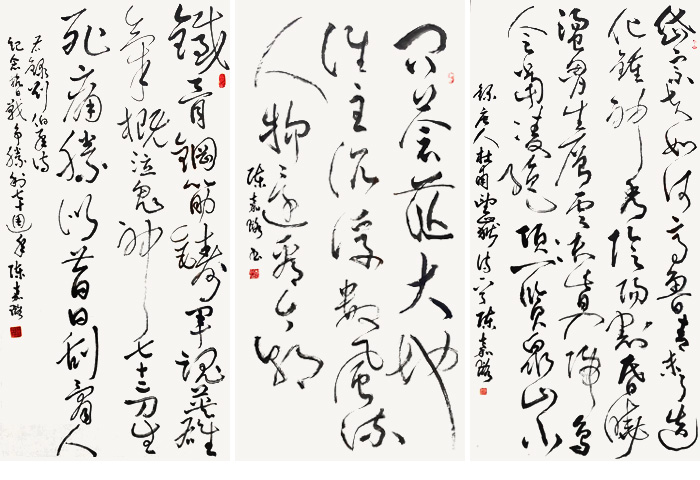 岱宗夫如何齊魯青未了造
化鍾神秀陰陽割昏曉
盪胸生層雲決眥入歸鳥
會當凌絕頂一覽眾山小
錄唐人杜甫望嶽詩一首陳嘉璐
問蒼茫大地
誰主沉浮數風流
人物還看今朝
陳嘉璐書
鐵骨鋼筋鑄軍魂英雄
氣概泣鬼神七十二刀生
死痛勝似昔日刮骨人
右錄劉伯承詩
紀念抗日戰爭勝利七十週年陳嘉璐